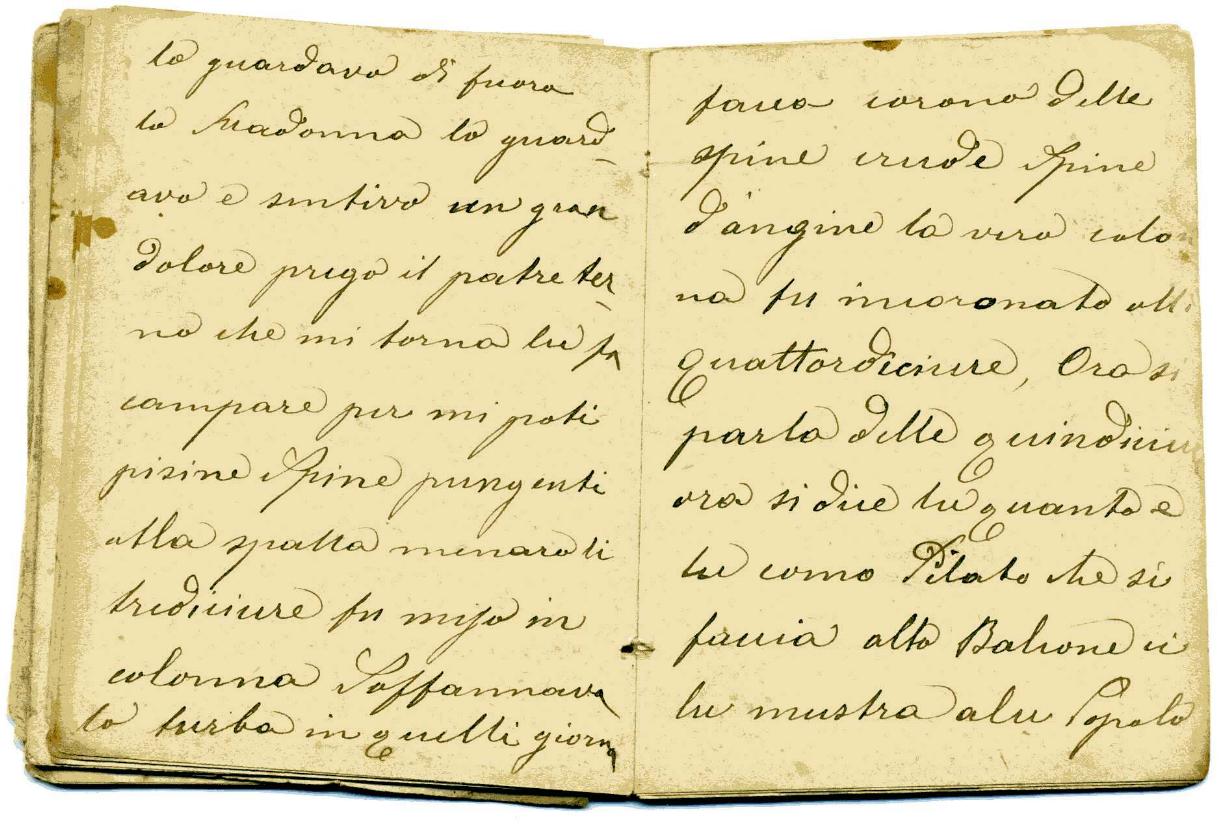 lo guardava di fuora
la Madonna lo guard-
ava e sintiva un gran
dolore prigo il patre ter-
no che mi torna lu fa
campare pir mi poti
pisine Spine pungenti
alla spalla menaro li
tridiciure fu miso in
colonna S'affannava
la turba in quelli giorna
facia corona delle
spine crude Spine
d'angine la vera colon
na fu incoronato alli
quattordiciure, Ora si
parla delle quindiciure
ora si dice lu quanto e
lu como Pilato che si
faccia alto Balcone ci
lu mustra alu Popolo